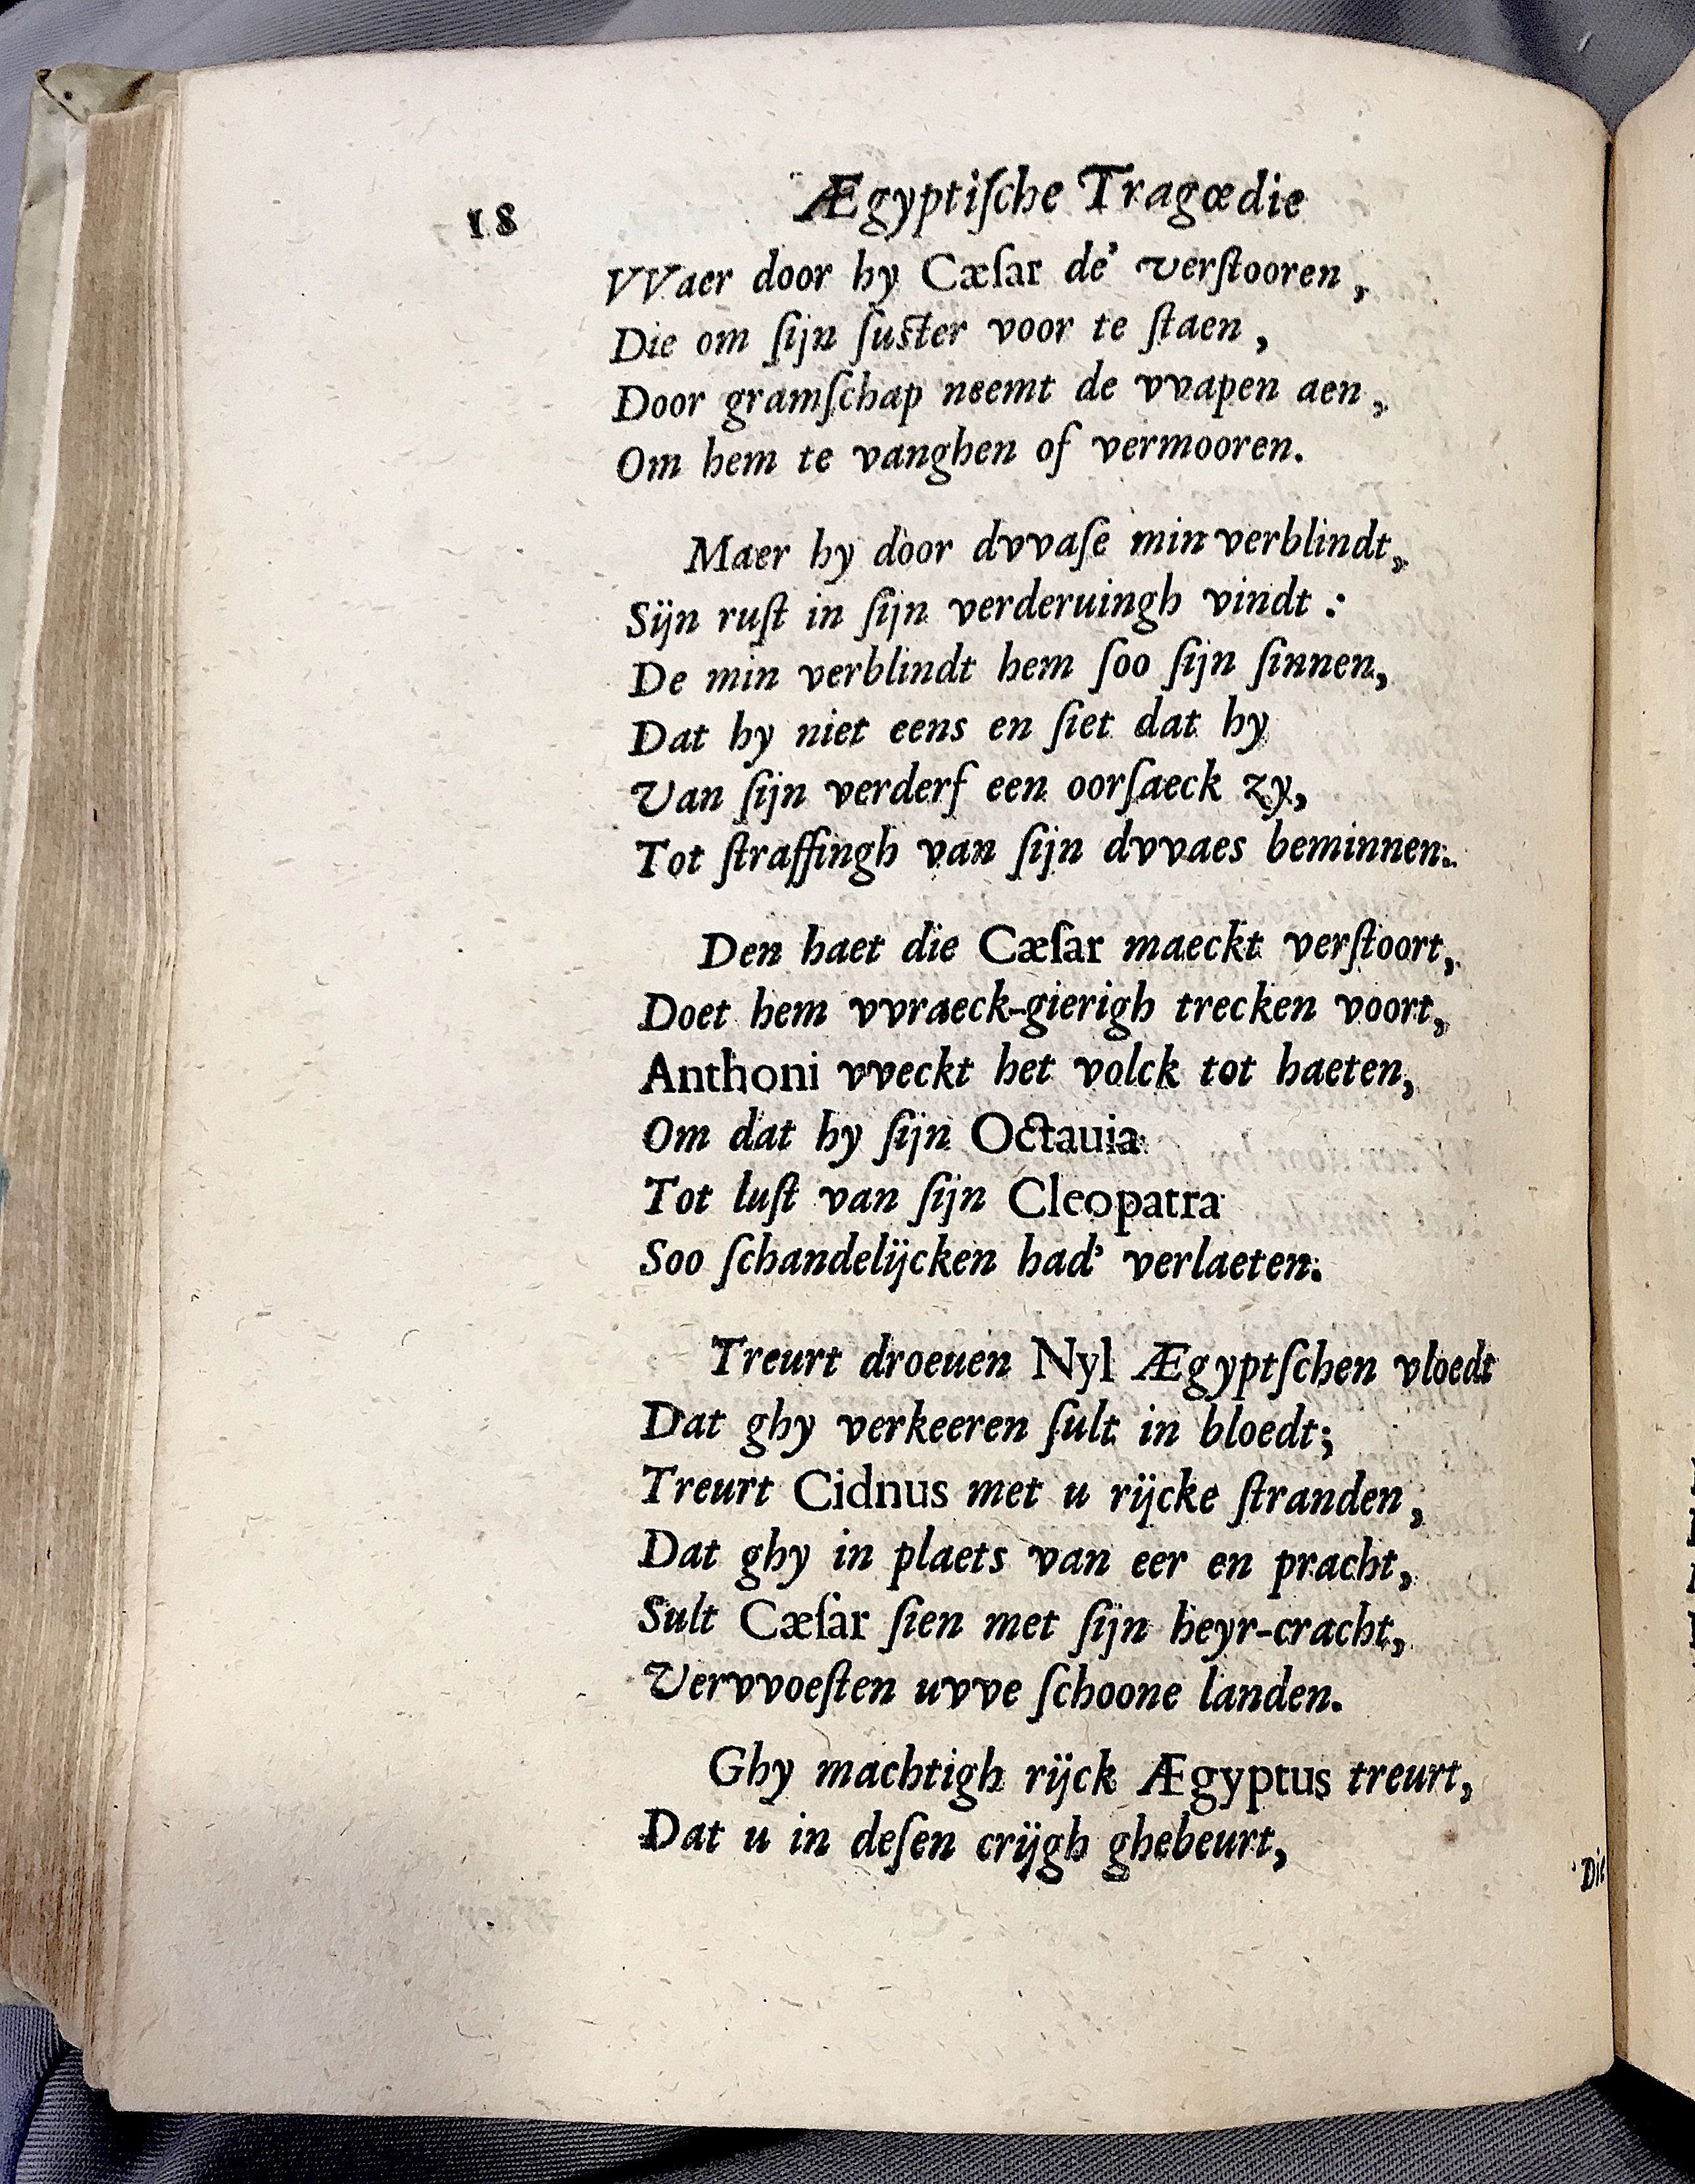 18
Ægyptiſche Tragœdie
VVaer door hy Cæſar de' verſtooren,
Die om ſijn ſuſter voor te ſtaen,
Door gramſchap neemt de vvapen aen,
Om hem te vanghen of vermooren.
Maer hy door dvvaſe min verblindt,
Sijn ruſt in ſijn verderuingh vindt:
De min verblindt hem ſoo ſijn ſinnen,
Dat hy niet eens en ſiet dat hy
Van ſijn verderf een oorſaeck zy,
Tot ſtraffingh van ſijn dvvaes beminnen.
Den haet die Cæſar maeckt verſtoort,
Doet hem vvraeck-gierigh trecken voort,
Anthoni vveckt het volck tot haeten,
Om dat hy ſijn Octauia
Tot luſt van ſijn Cleopatra
Soo ſchandelijcken had' verlaeten.
Treurt droeuen Nyl Ægyptſchen vloedt
Dat ghy verkeeren ſult in bloedt;
Treurt Cidnus met u rijcke ſtranden,
Dat ghy in plaets van eer en pracht,
Sult Cæſar ſien met ſijn heyr-cracht,
Vervvoeſten uvve ſchoone landen.
Ghy machtigh rijck Ægyptus treurt,
Dat u in deſen crijgh ghebeurt,
Die